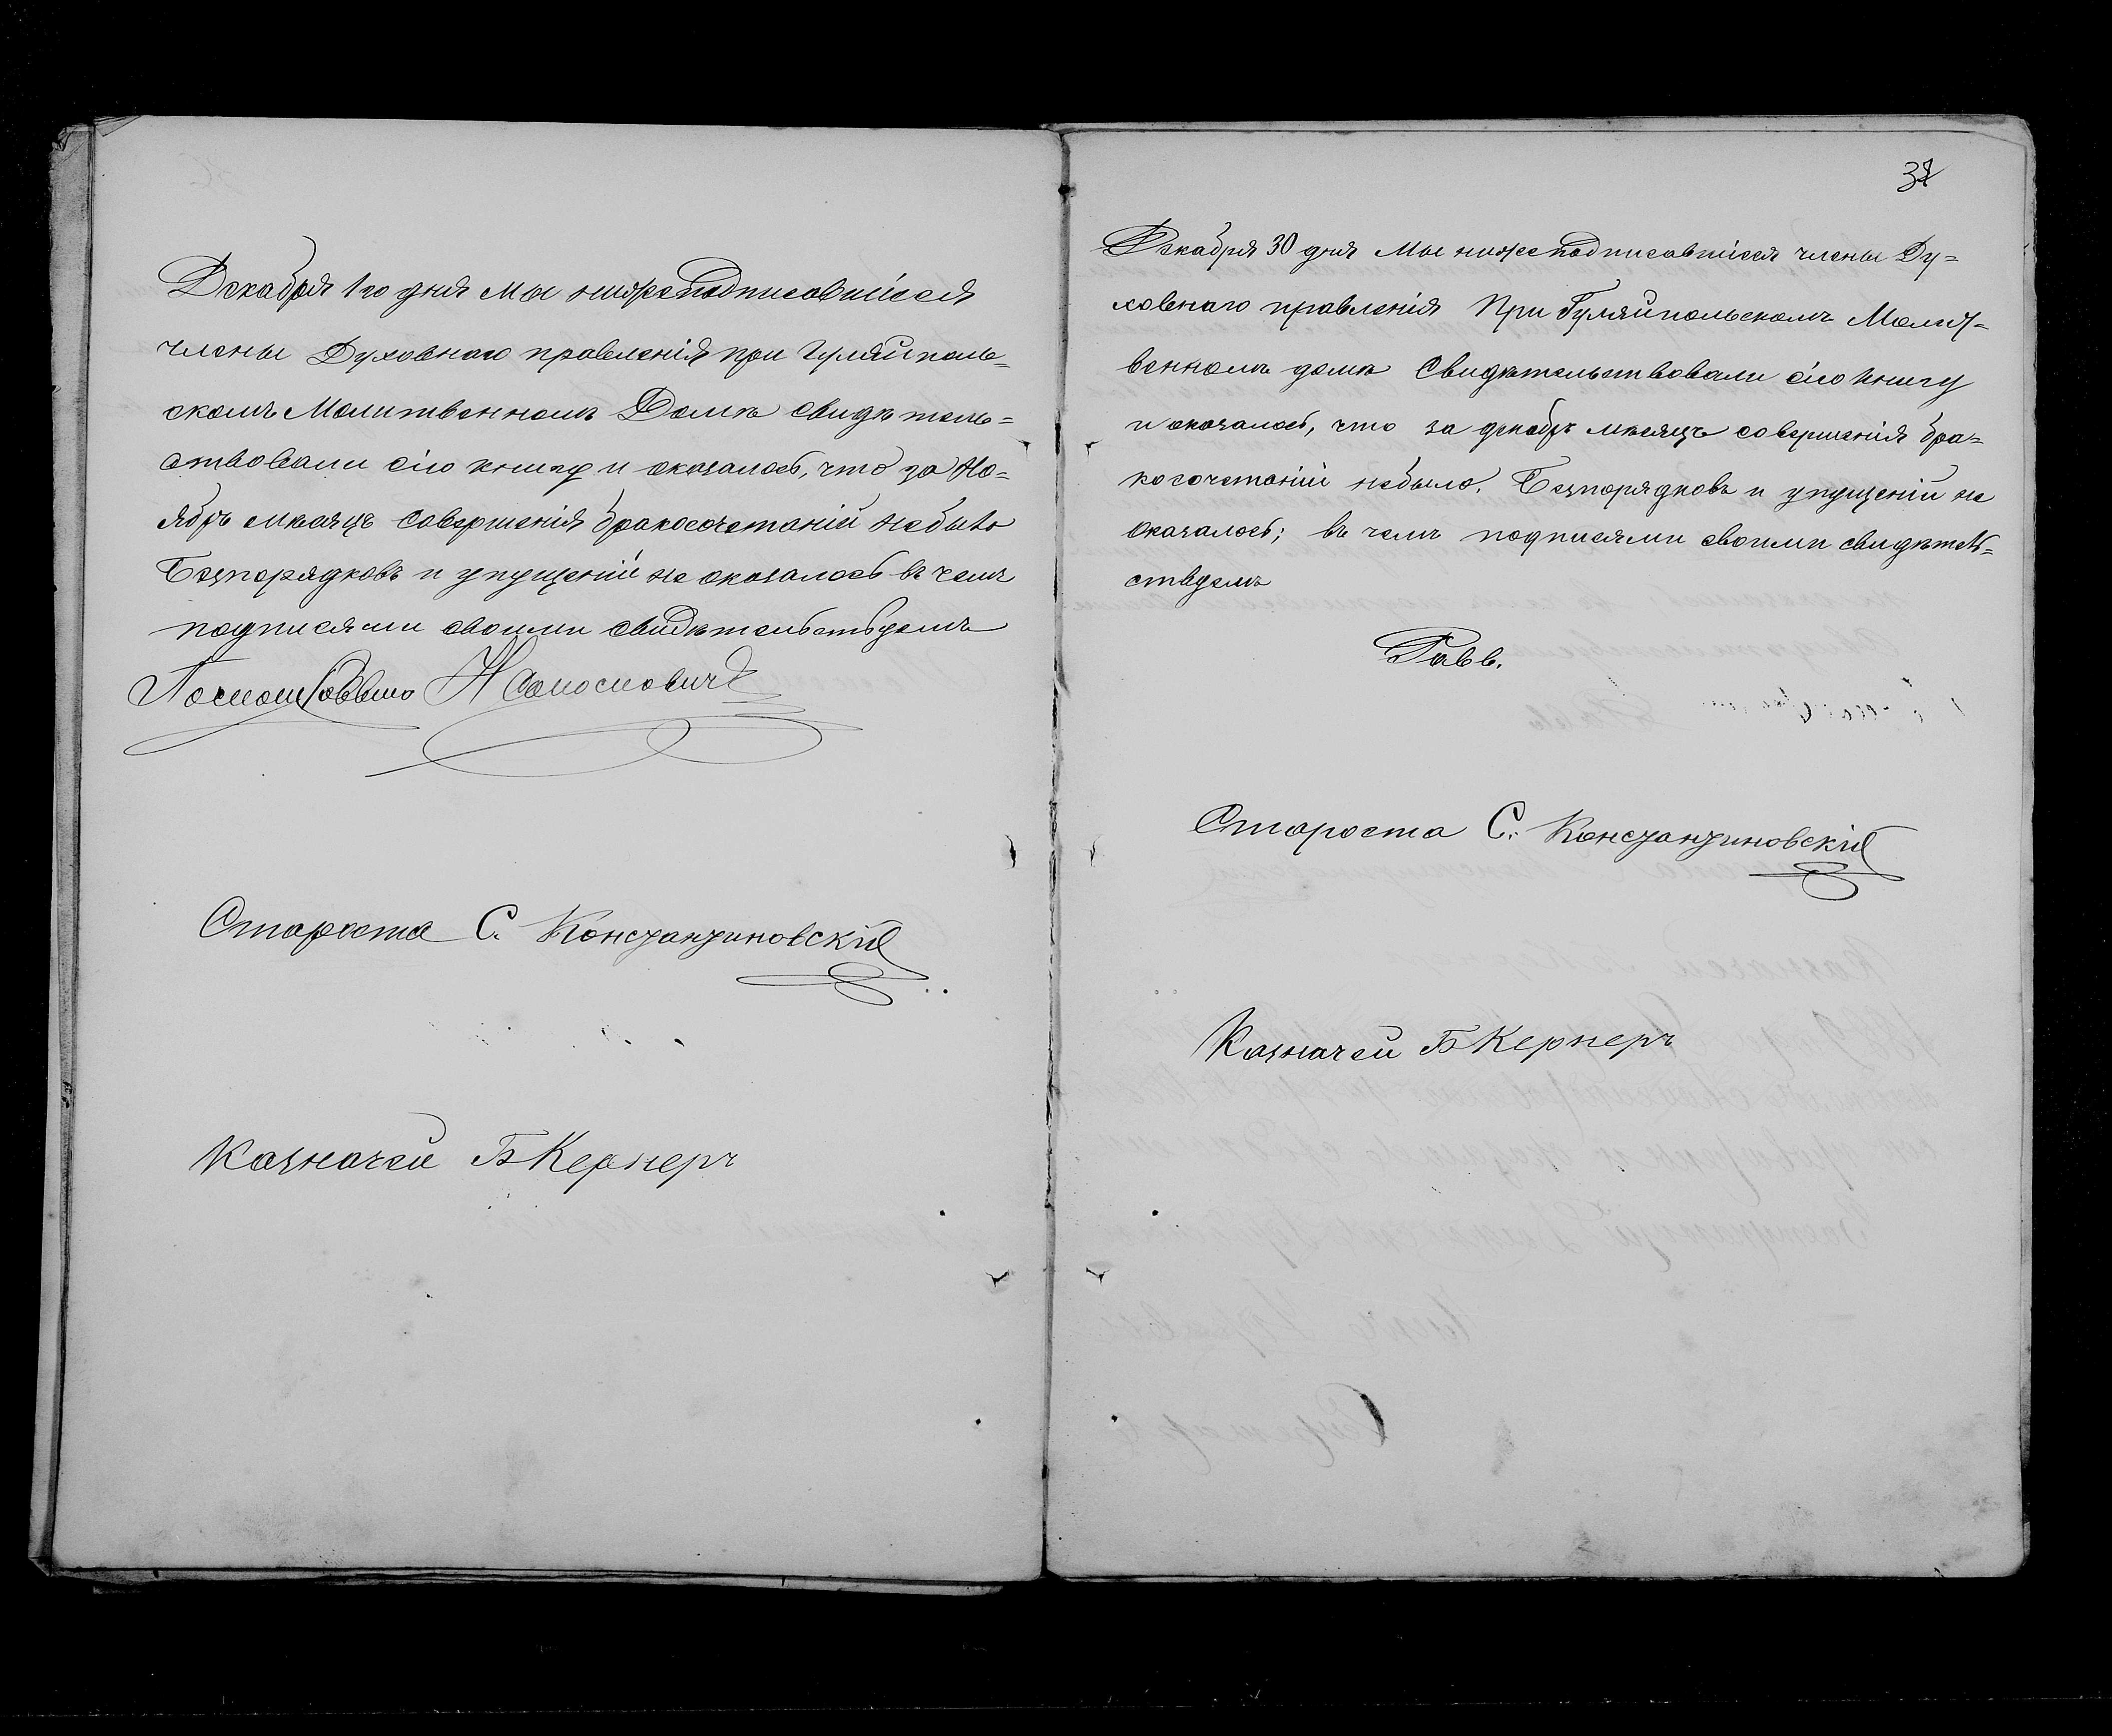 Декабря 1го дня мы нижеподписавшіеся
члены Духовнаго правленія при Гуляйполь-
скомъ Молитвенномъ Домѣ свидѣтель-
ствовали сію книгу и оказалось, что за Но-
ябрь мѣсяцъ совершенія бракосочетаній небыло
Безпорядковъ и упущеній не оказалось въ чемъ
подписями своими свидѣтельствуемъ
Староста С. Константиновскій
Казначей Б Кернеръ
Декабря 30 дня Мы нижеподписавшіеся члены Ду-
ховнаго правленія При Гуляйпольскомъ Молит-
венномъ домѣ Свидѣтельствовали сію книгу
и оказалось, что за декабрь мѣсяцъ совершенія бра-
косочетаній небыло. Безпорядковъ и упущеній не
оказалось; въ чемъ подписями своими свидѣтель-
ствуемъ
Равв.
Староста С. Константиновскій
Казначей Б Кернеръ